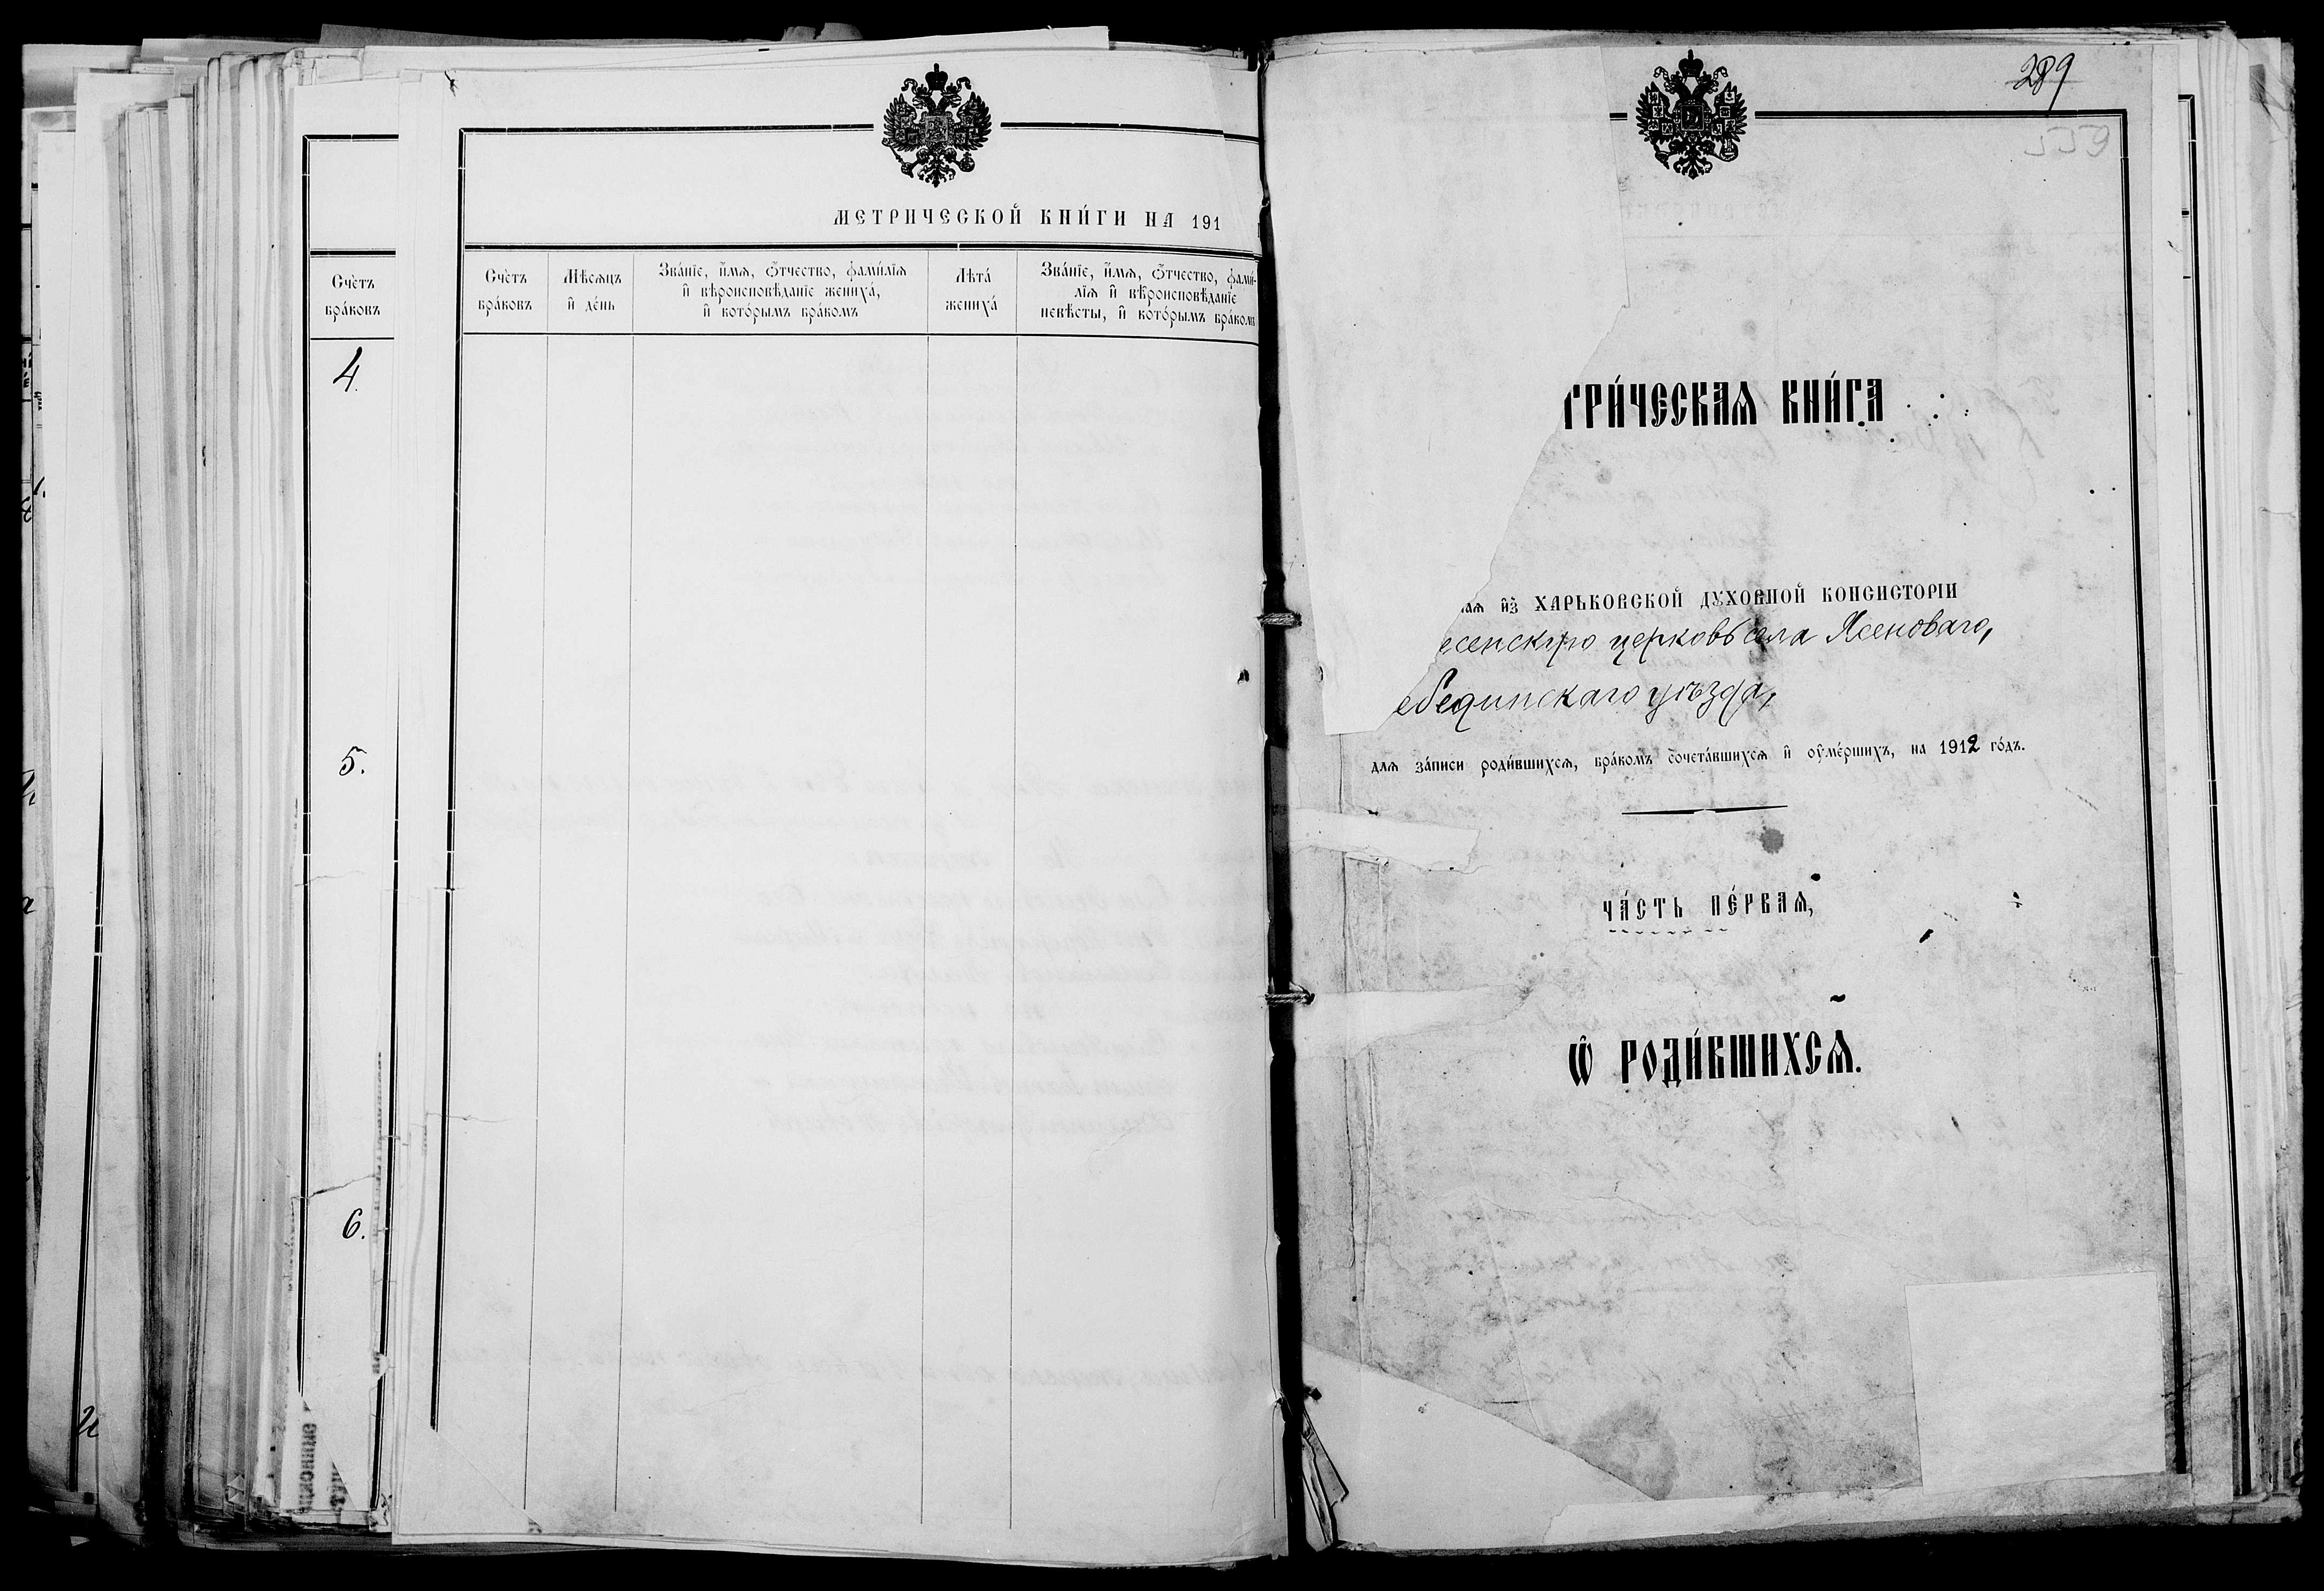 Сче́тъ
бра́ковъ
4.
5.
6.
МЕТРИЧЕСКОЙ КНИ́ГИ НА 191
Сче́тъ
бра́ковъ
Мѣ́сяцъ
и҆ де́нь
Зва́нїе, и҆́мѧ, ѻ҆́тчество, фами́лїѧ
и҆ вѣроисповѣ́данїе жениха́,
и҆ кото́рымъ бра́комъ
Лѣта́
жениха́
Зва́нїе, и҆́мѧ, ѻ҆́тчество, фами́-
лїѧ и҆ вѣроисповѣ́данїе
невѣ́сты, и҆ кото́рымъ бра́комъ
289
559
ТРИ́ЧЕСКАѦ КНИ́ГА
наѧ и҆з̾ ХАРЬКОВСКОЙ ДУХОВНОЙ КОНСИСТОРІИ
есенскую церковь села Ясеноваго,
ебединскаго уѣзда,
длѧ за́писи роди́вшихсѧ, бра́комъ сочета́вшихсѧ и҆ оу҆ме́ршихъ, на 1912 го́дъ.
ЧА́СТЬ ПЕ́РВАѦ,
Ѡ҆ РОДИ́ВШИХСѦ.